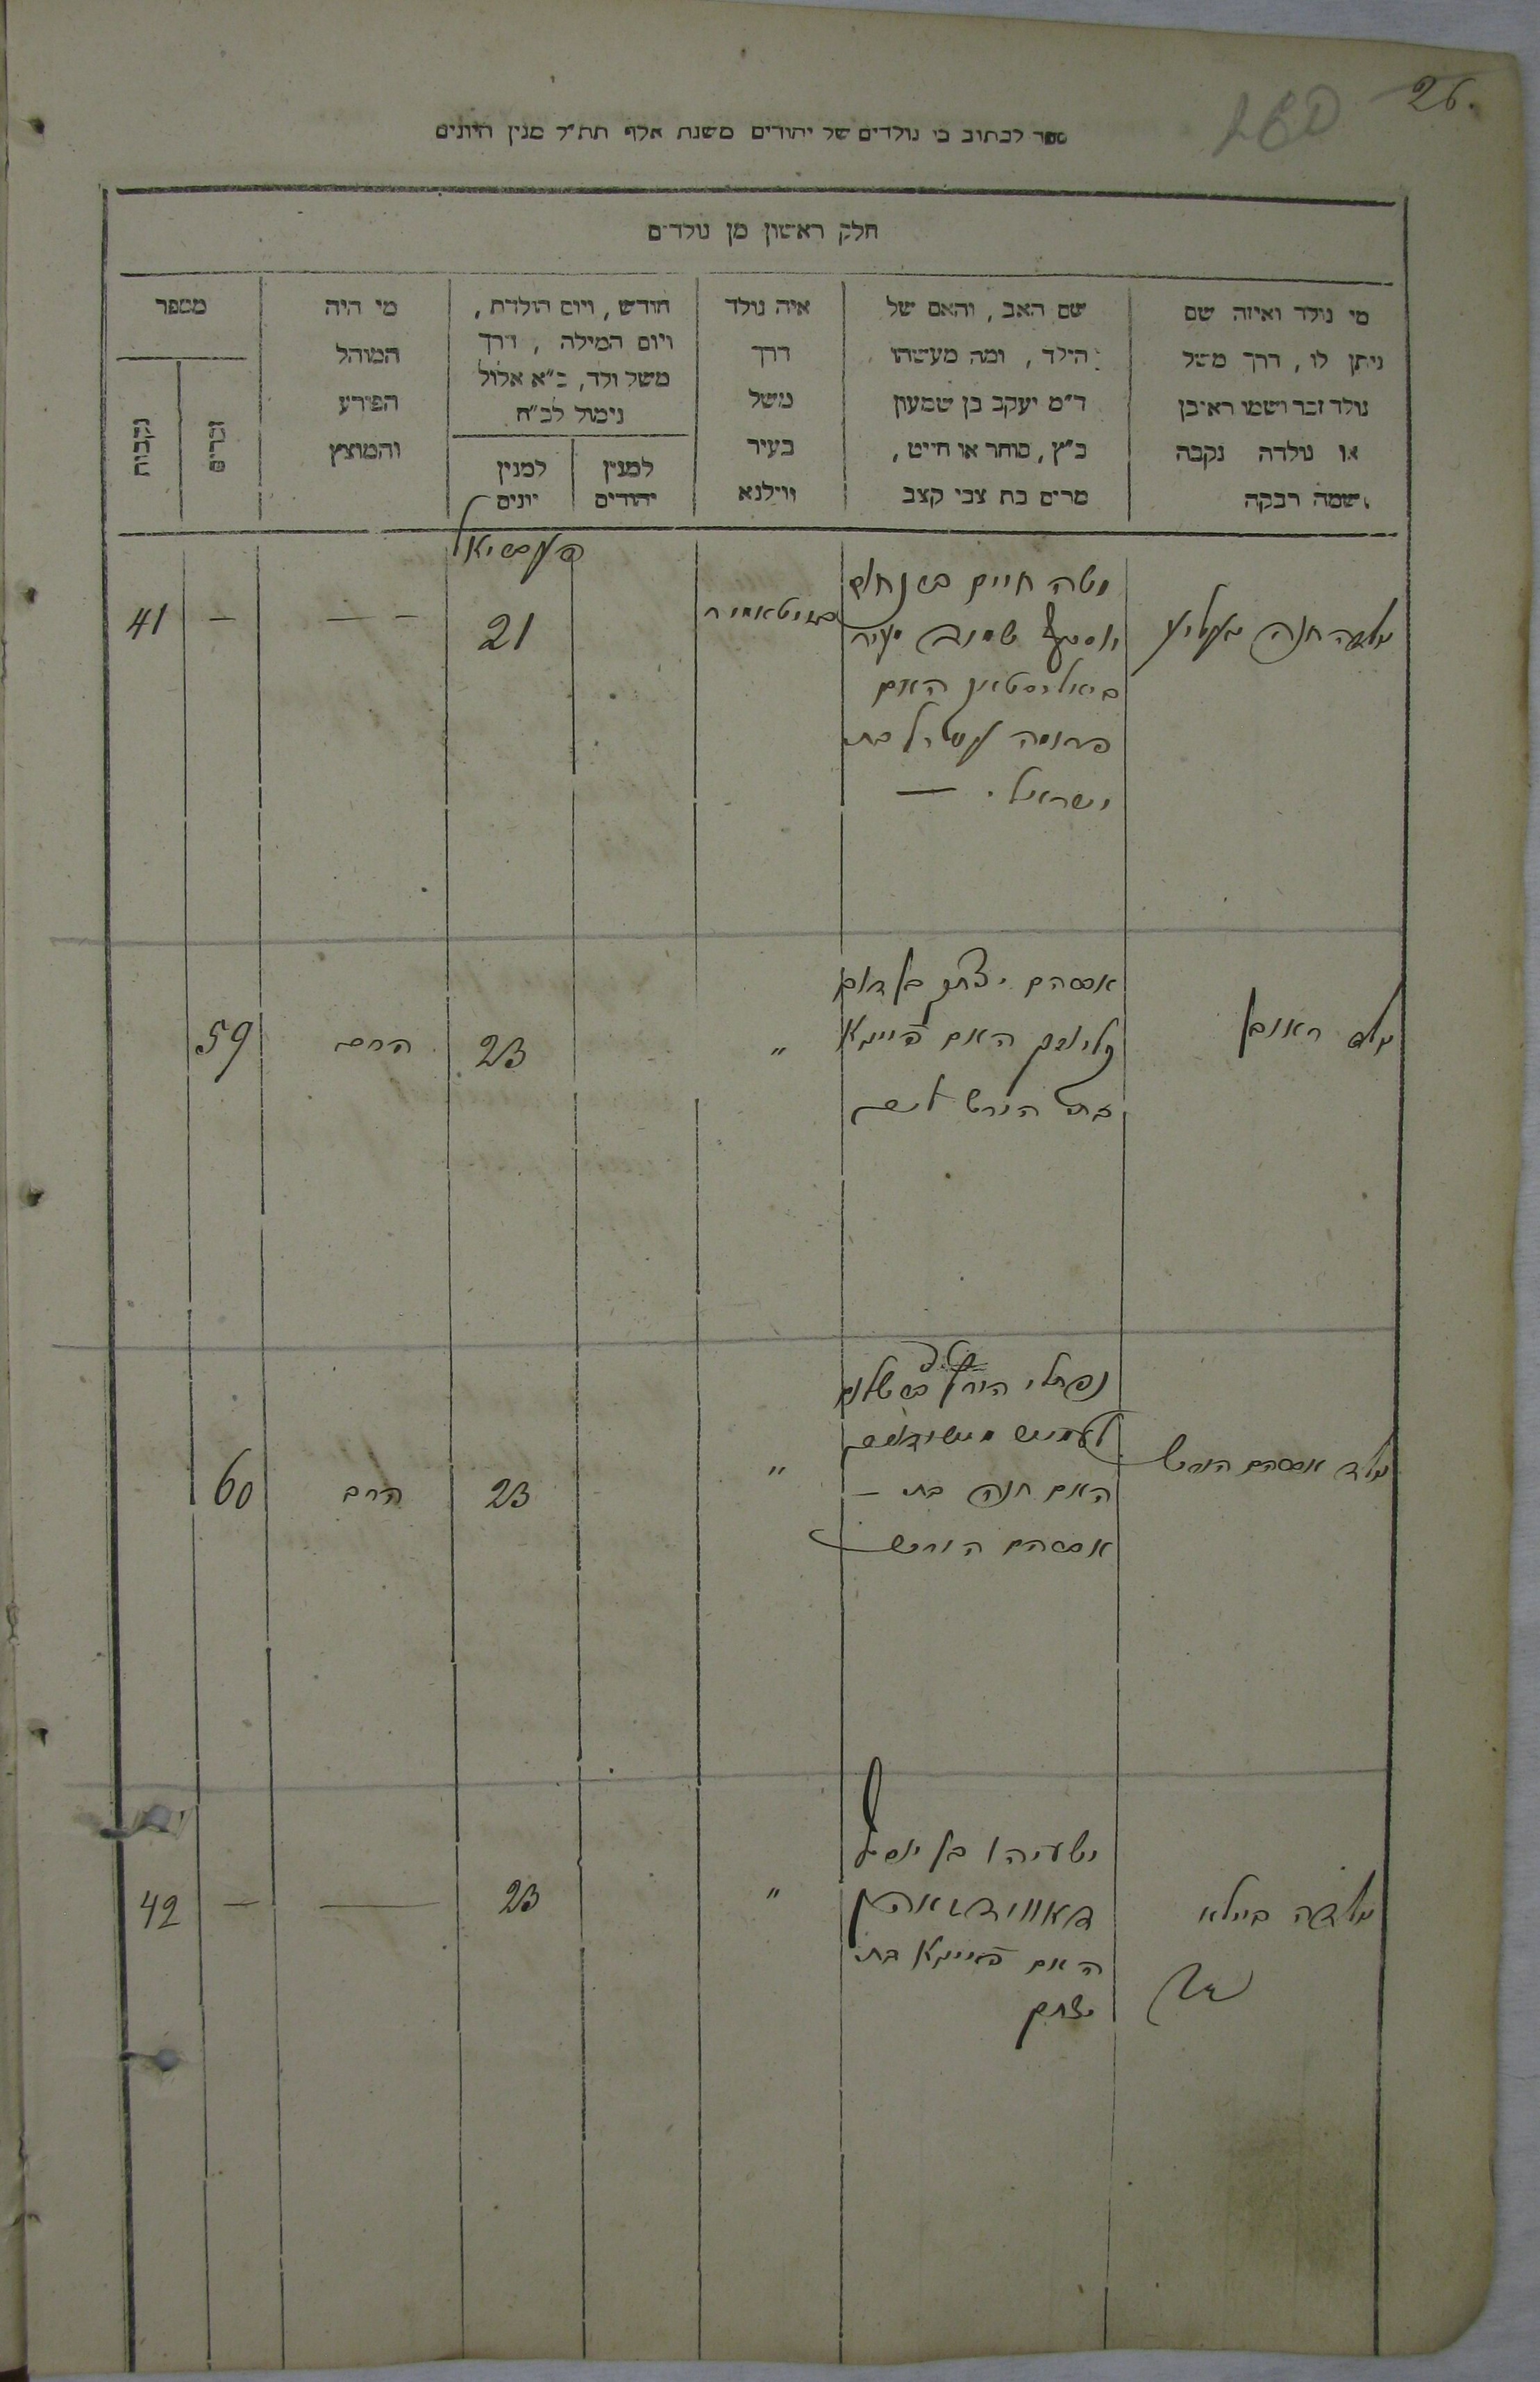 26.
ספר לכתוב בו נולדים של יהודים משנת אלף תת״ל מנין היונים
חלק ראשון מן נולדים
מי נולד ואיזה שם
ניתן לו, דרך משל
נולד זכר ושמו ראובן
או נולדה נקבה
ושמה רבקה
שם האב, והאם של
הילד, ומה מעשהו
ד״מ יעקב בן שמעון
כ״ץ, סוחר או חייט,
מרים בת צבי קצב
איה נולד
דרך
משל
בעיר
ווילנא
חודש, ויום הולדת,
ויום המילה, דרך
משל ולד, כ״א אלול
נימול לכ״ח
למנין יהודים
למנין יונים
מי היה
המוהל
הפורע
והמוצץ
מספר
זכרים
נקבות
נולדה חנה
משה חיים
ביאליסטאק האם
פרומה בת
ישראל. —
בזיטאמיר
21
—
—
41
נולד ראובן
אברהם יצחק בן
האם פייגא
בת הירש
"
23
הרב
59
נולד אברהם הירש
נפתלי הירץ
האם חנה בת —
אברהם הירש
"
23
הרב
60
נולדה ביילא
ישעיהו בן יוסף
האם פייגא בת
יצחק
"
23
—
—
42